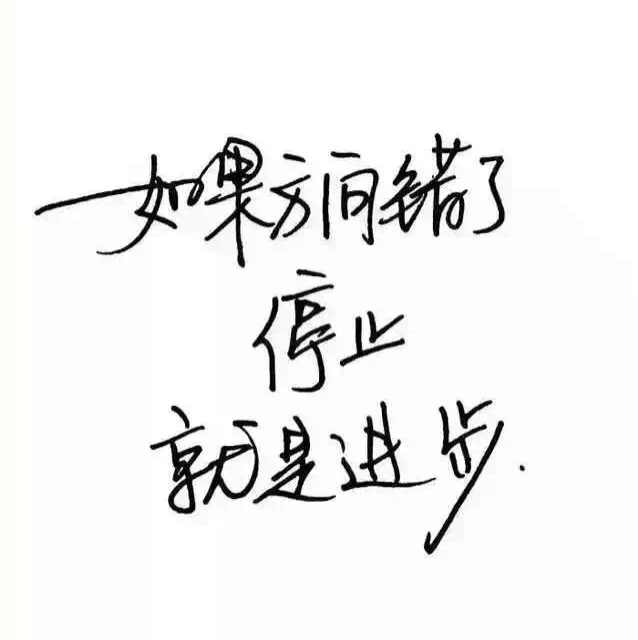 如果方向错了
停止
就是进步.